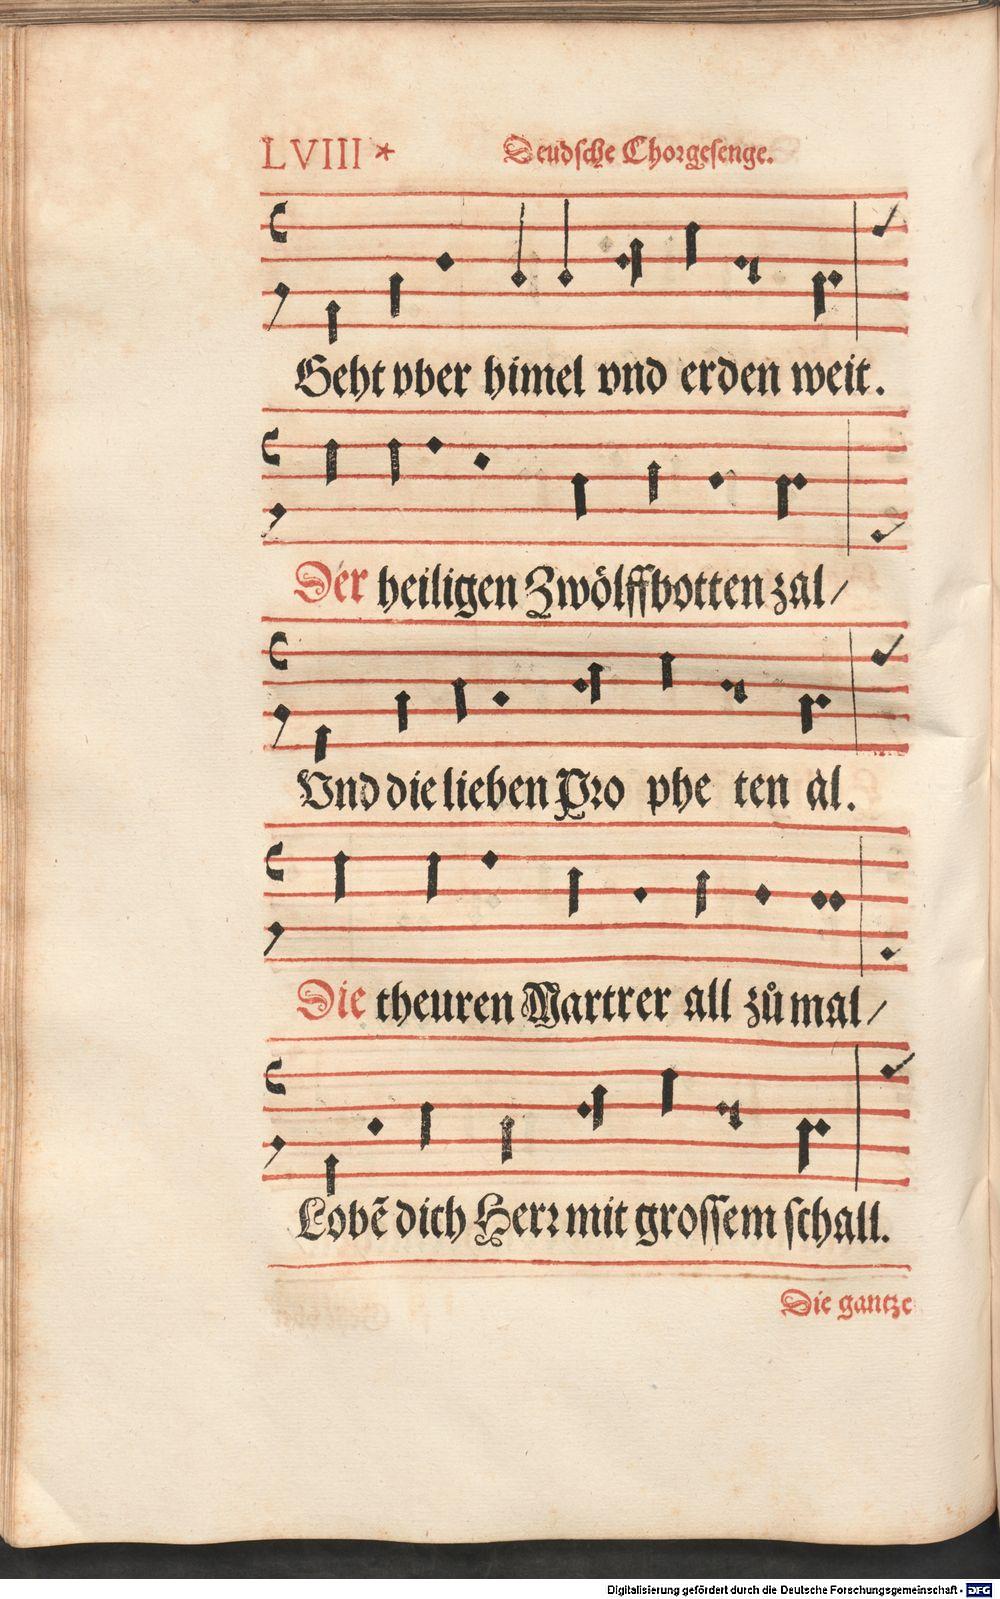 LVIII * Deudsche Chorgesenge.
Geht vber himel vnd erden weit.
Der heiligen Zwölffbotten zal/
Vnd die lieben Pro phe ten al.
Die theuren Martrer all zůmal/
Lobē dich Herr mit grossem schall.
Die gantze
Digitalisierung gefördert durch die Deutsche Forschungsgemeinschaft - DFG